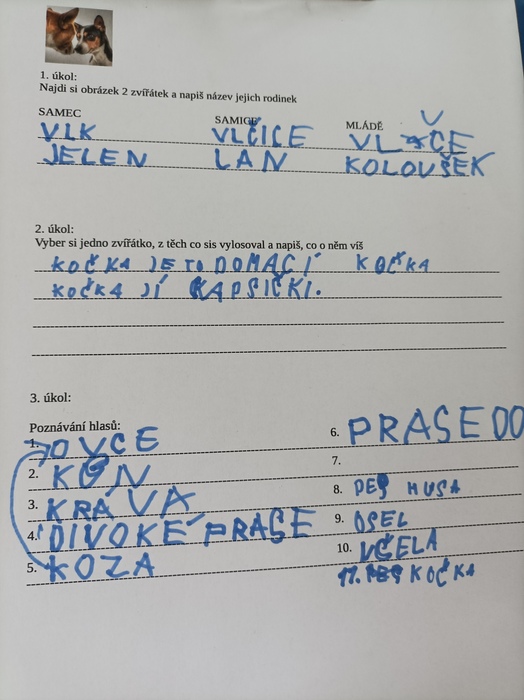 1. úkol:
Najdi si obrázek 2 zvířátek a napiš název jejich rodinek
SAMEC SAMICE MLÁDĚ
VLK VLČICE VLČE
JELEN LAN KOLOUŠEK
2. úkol:
Vyber si jedno zvířátko, z těch co sis vylosoval a napiš, co o něm víš
KOČKA JE TO DOMACÍ KOČKA
KOČKA JÍ KAPSIČKI.
3. úkol:
Poznávání hlasů:
1. OVCE
2. KŮN
3. KRÁVA
4. DIVOKÉ PRASE
5. KOZA
6. PRASE DO
7.
8. PES HUSA
9. OSEL
10. VČELA
11. PES KOČKA